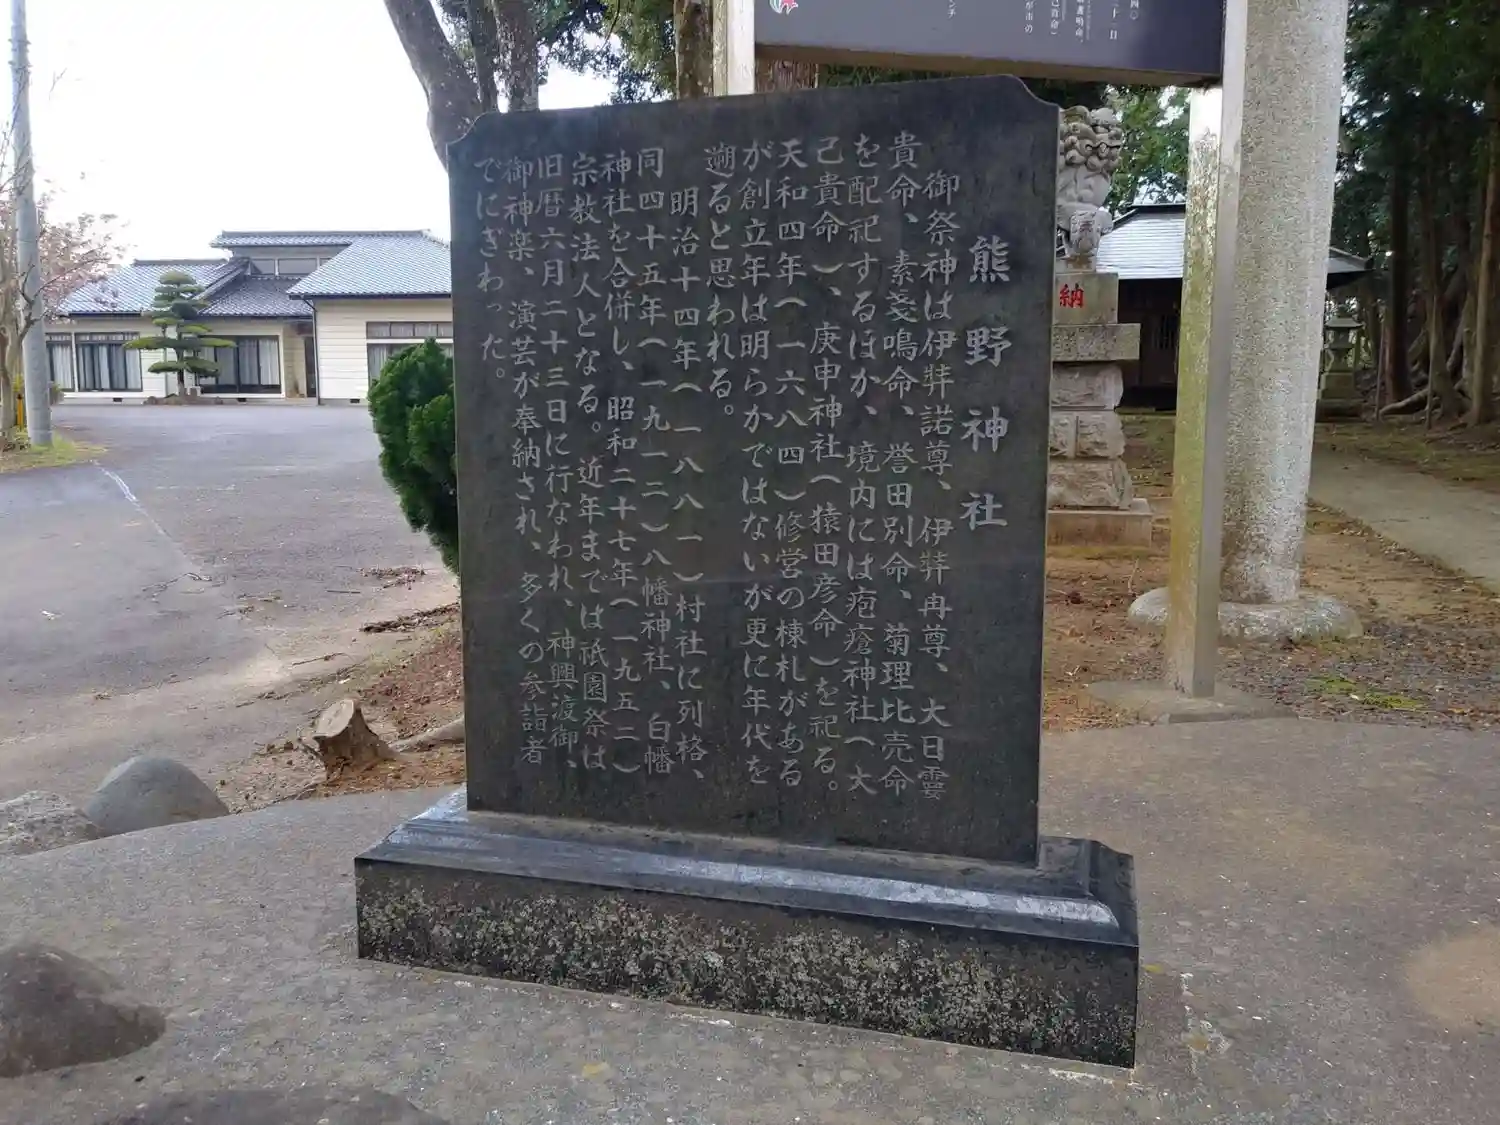 熊野神社
御祭神は伊弉諾尊、伊弉冉尊、大日霎
貴命、素戔鳴命、誉田別命、菊理比売命
を配祀するほか、境内には疱瘡神社(大
己貴命)、庚申神社(猿田彦命)を祀る。
天和四年(一六八四)修営の棟札がある
が創立年は明らかではないが更に年代を
遡ると思われる。
明治十四年(一八八一)村社に列格、
同四十五年(一九一二)八幡神社、白幡
神社を合併し、昭和二十七年(一九五二)
宗教法人となる。近年までは祇園祭は
旧暦六月二十三日に行なわれ、神興渡御、
御神楽、演芸が奉納され、多くの参詣者
でにぎわった。
納